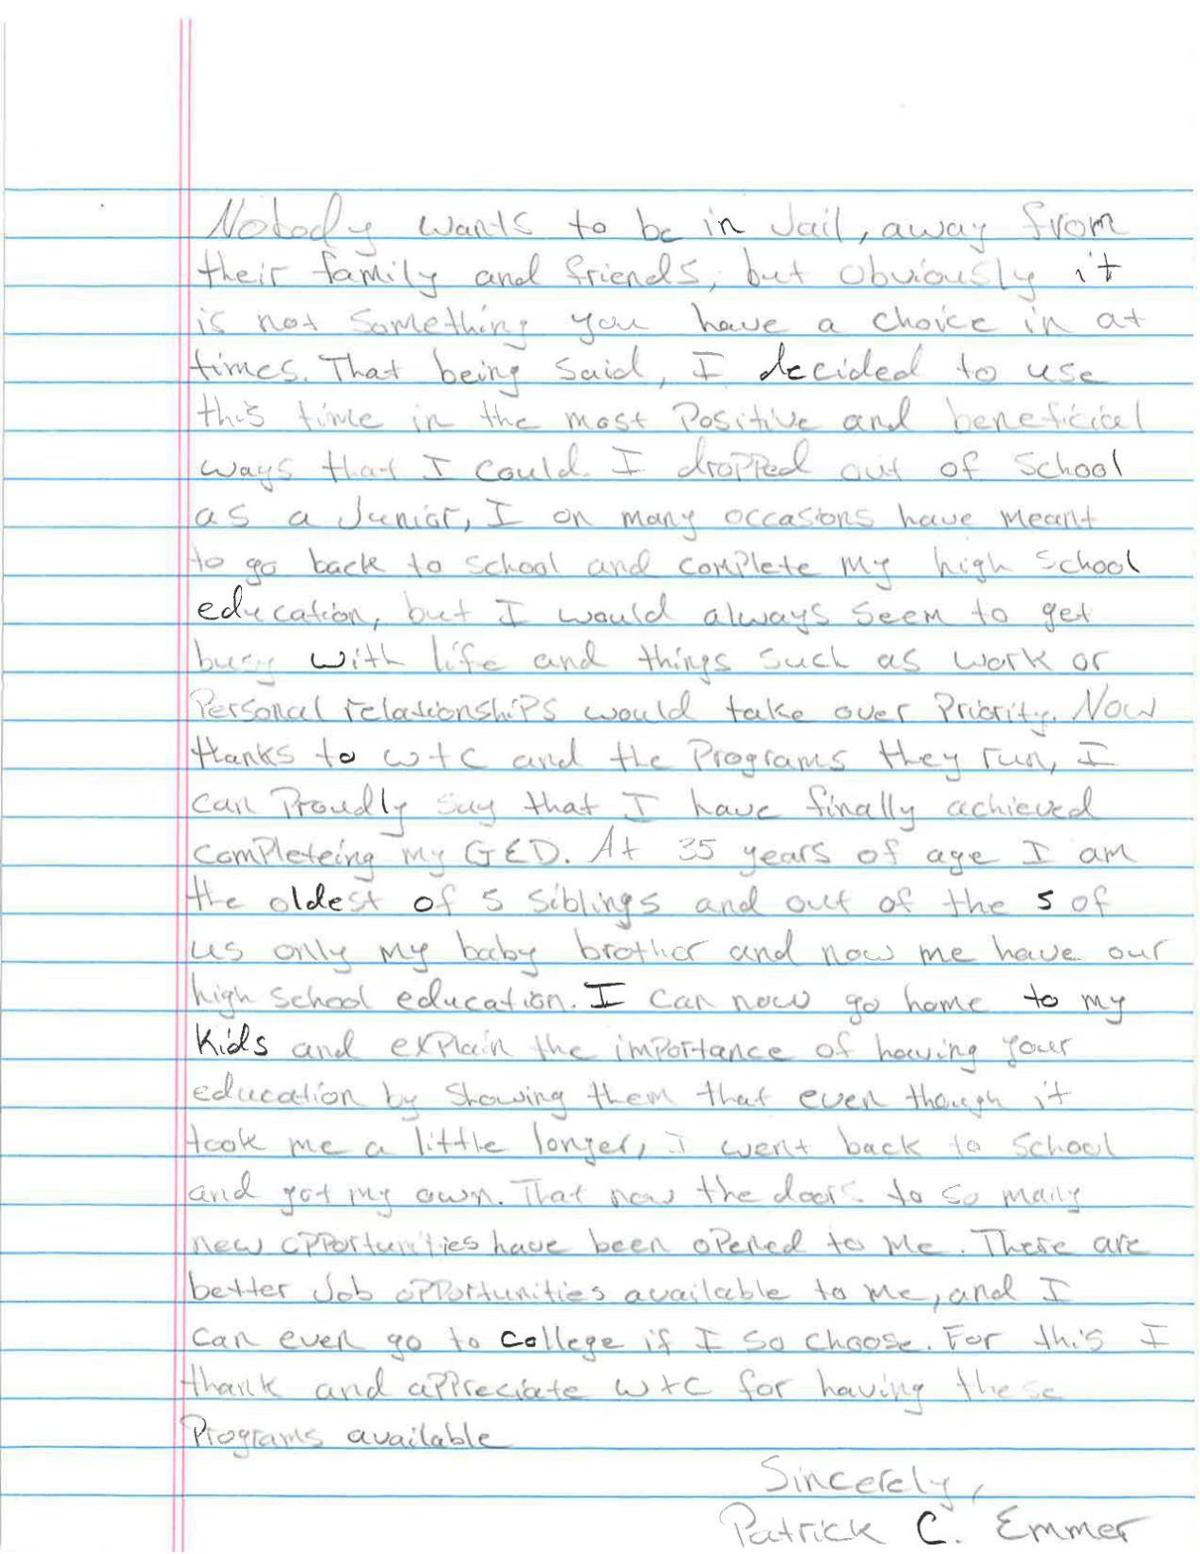 Nobody wants to be in Jail, away from
their family and friends, but obviously it
is not something you have a choice in at
times. That being said, I decided to use
this time in the most Positive and beneficial
ways that I could. I dropped out of School
as a Junior, I on many occasions have meant
to go back to school and complete my high School
education, but I would always seem to get
busy with life and things such as work or
Personal relationships would take over Priority. Now
thanks to wtc and the Programs they run, I
can Proudly say that I have finally achieved
completeing my GED. At 35 years of age I am
the oldest of 5 siblings and out of the 5 of
us only my baby brother and now me have our
high school education. I can now go home to my
kids and explain the importance of having your
education by showing them that even though it
took me a little longer, I went back to school
and got my own. That now the doors to so many
new opportunities have been opened to me. There are
better Job opportunities available to me, and I
can even go to college if I so choose. For this I
thank and appreciate wtc for having these
Programs available
Sincerely,
Patrick C. Emmer